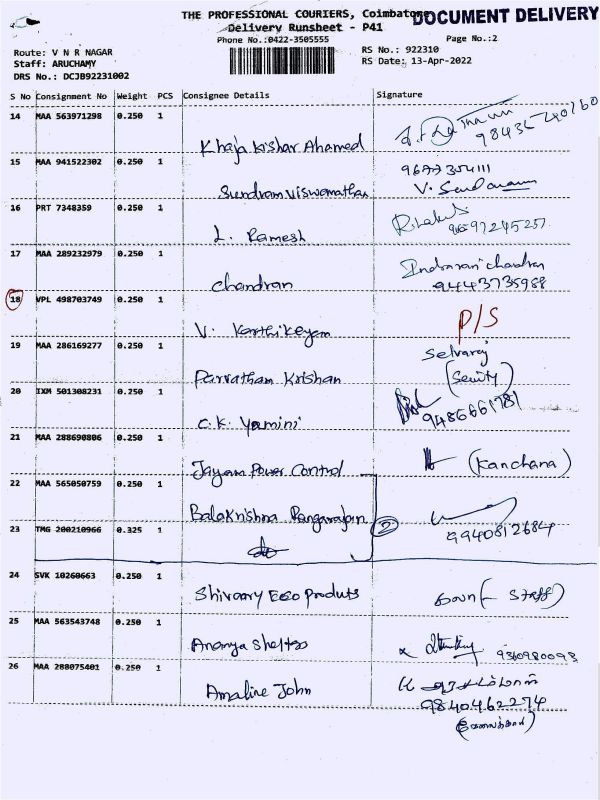 THE PROFESSIONAL COURIERS, Coimbatore
DOCUMENT DELIVERY
Delivery Runsheet - P41
Phone No.:0422-3505555
Page No.:2
Route: V N R NAGAR
Staff: ARUCHAMY
DRS No.: DCJB92231002
RS No.: 922310
RS Date: 13-Apr-2022
S No Consignment No Weight PCS Consignee Details Signature
14 MAA 563971298 0.250 1
Khaja Kishar Ahamed
15 MAA 941522302 0.250 1 9677354111
Sundram Viswanathan
16 PRT 7348359 0.250 1
L. Ramesh
17 MAA 289232979 0.250 1 Indrani chandran
Chandran 9443735988
18 VPL 498703749 0.250 1 P/S
V. Karthikeyan
19 MAA 286169277 0.250 1 Selvaraj
Parvatham Krishan
20 IXM 501308231 0.250 1
C.K. Yamini 9486661781
21 MAA 288690806 0.250 1 (Kanchana)
Jayam Power Control
22 MAA 565050759 0.250 1
Balakrishna Rangarajan 2
23 TMG 200210966 0.325 1 9940812684
24 SVK 10260663 0.250 1
Shivaary Eco Produts (- Staff)
25 MAA 563543748 0.250 1
Ananya Sheltos 9360980093
26 MAA 288075401 0.250 1
Amaline John
9840462274